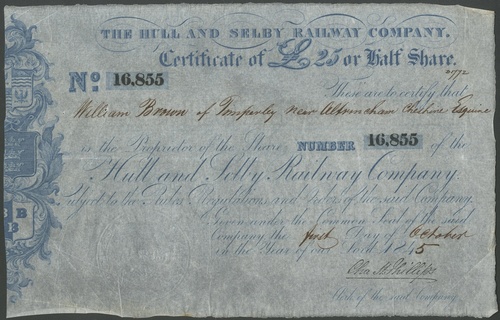 THE HULL AND SELBY RAILWAY COMPANY.
Certificate of £25 or Half Share.
No. 16,855
These are to certify that
William Brown of Timperley near Altrincham Cheshire Esquire
is the Proprietor of the Share NUMBER 16,855 of the
Hull and Selby Railway Company.
Subject to the Rules Regulations and Orders of the said Company.
Given under the Common Seal of the said
Company the first Day of October
in the Year of our Lord 1845
Clerk of the said Company